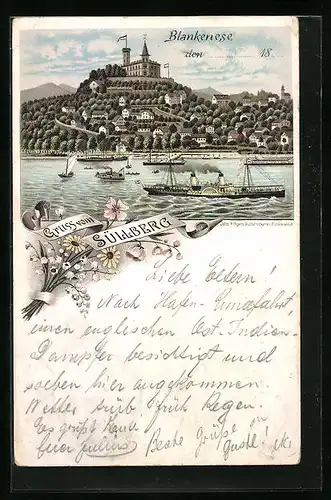 Blankenese
den 18
Gruss vom
SÜLLBERG
Liebe Eltern!
Nach Hafen-Rundfahrt,
einen englischen Ost-Indien-
Dampfer besichtigt und
soeben hier angekommen.
Wetter trüb, früh Regen.
Es grüßt Euch
Euer Julius. Beste Grüße
Gustl!